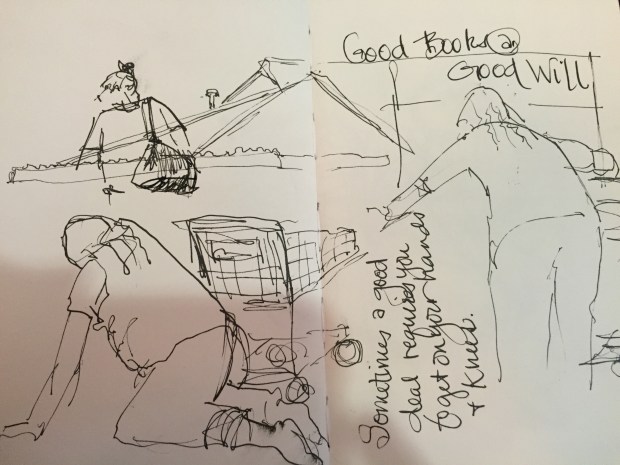 Good Books @
Good Will
Sometimes a good
deal requires you
to get on your hands
+ Knees.